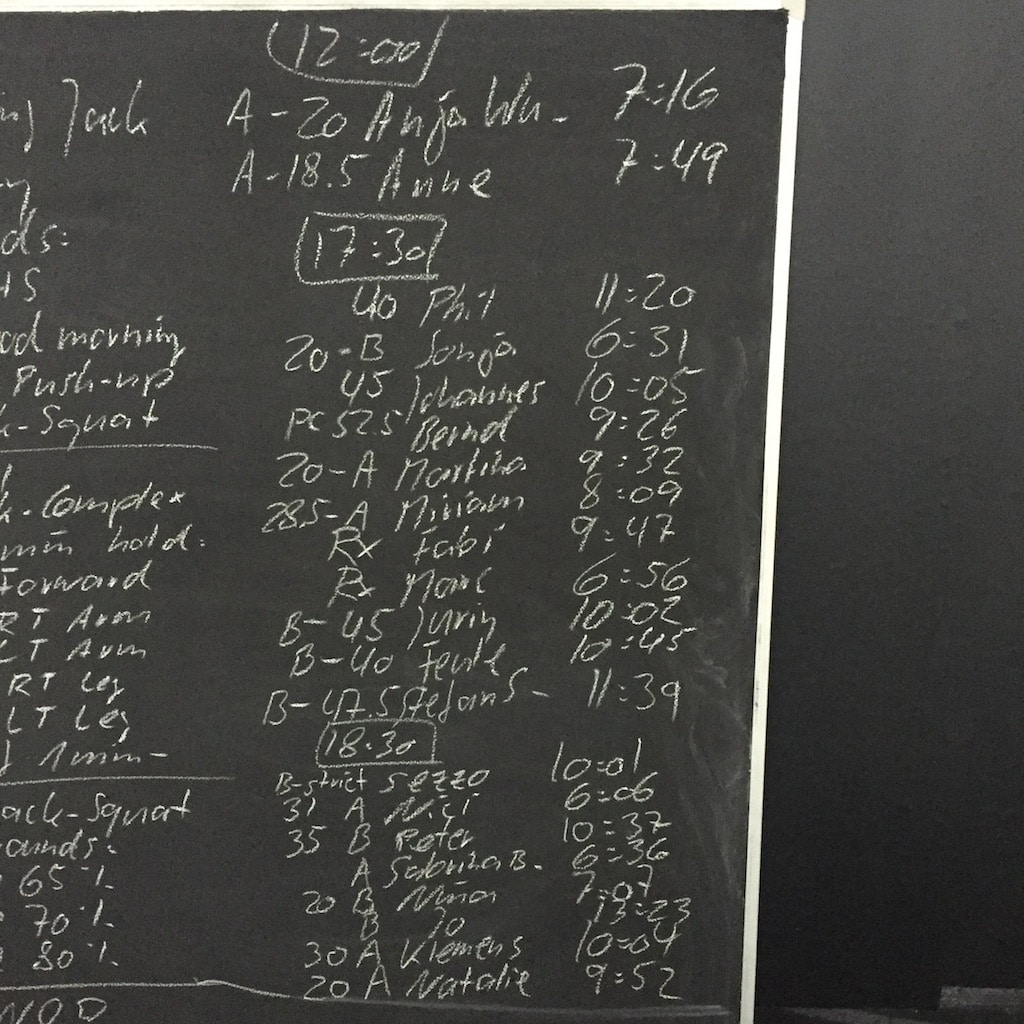 Jack
ds:
45
ood morning
Push-up
k-Squat
k-Complex
min hold:
Forward
RT Arm
LT Arm
RT Leg
LT Leg
1 min-
ack-Squat
ounds:
65%
70%
80%
WOD
12:00
A-20 Anja Wu. 7:16
A-18.5 Anne 7:49
17:30
40 Phil 11:20
20-B Sonja 6:31
45 Johannes 10:05
PC 52.5 Bernd 9:26
20-A Martina 9:32
28.5-A Miriam 8:09
Rx Fabi 9:47
Rx Marc 6:56
B-45 10:02
B-40 10:45
B-47.5 Stefan S- 11:39
18:30
B-strict Sezzo 10:01
31 A Nici 6:06
35 B Peter 10:37
A Sabrina B. 6:36
20 B Nina 7:07
B Jo 13:23
30 A Klemens 10:04
20 A Natalie 9:52